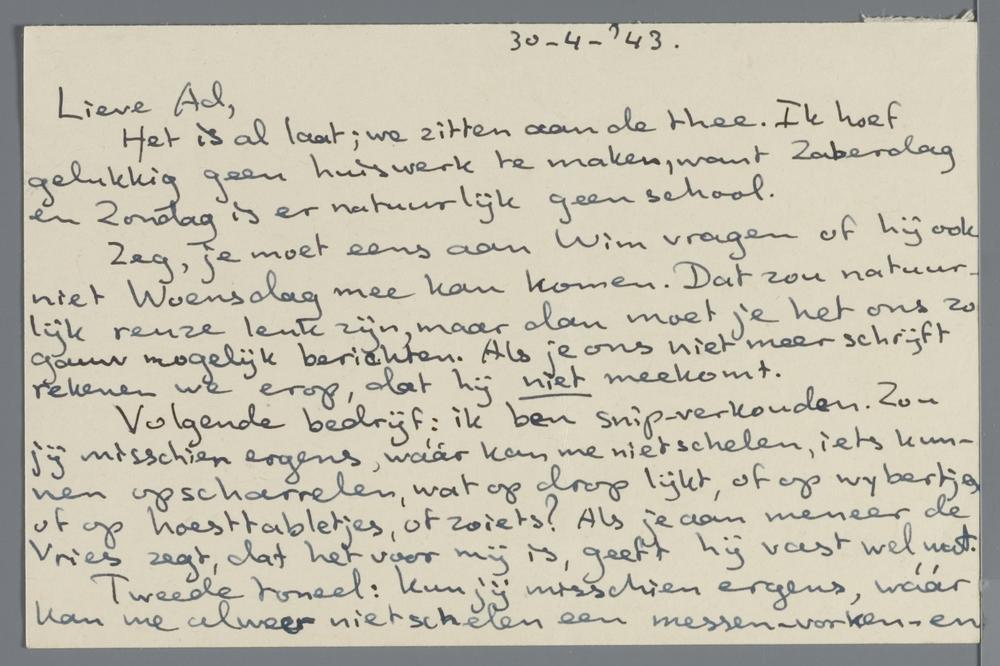 30-4-'43.
Lieve Ad,
Het is al laat; we zitten aan de thee. Ik hoef
gelukkig geen huiswerk te maken, want Zaterdag
en Zondag is er natuurlijk geen school.
Zeg, je moet eens aan Wim vragen of hij ook
niet Woensdag mee kan komen. Dat zou natuur-
lijk reuze leuk zijn, maar dan moet je het ons zo
gauw mogelijk berichten. Als je ons niet meer schrijft
rekenen we erop, dat hij niet meekomt.
Volgende bedrijf: ik ben snip-verkouden. Zou
jij misschien ergens, wáár kan me niet schelen, iets kun-
nen opscharrelen, wat op drop lijkt, of op wybertjes
of op hoesttabletjes, of zoiets? Als je aan meneer de
Vries zegt, dat het voor mij is, geeft hij vast wel wat.
Tweede toneel: kun jij misschien ergens, wáár
kan me alweer niet schelen een messen-vorken-en